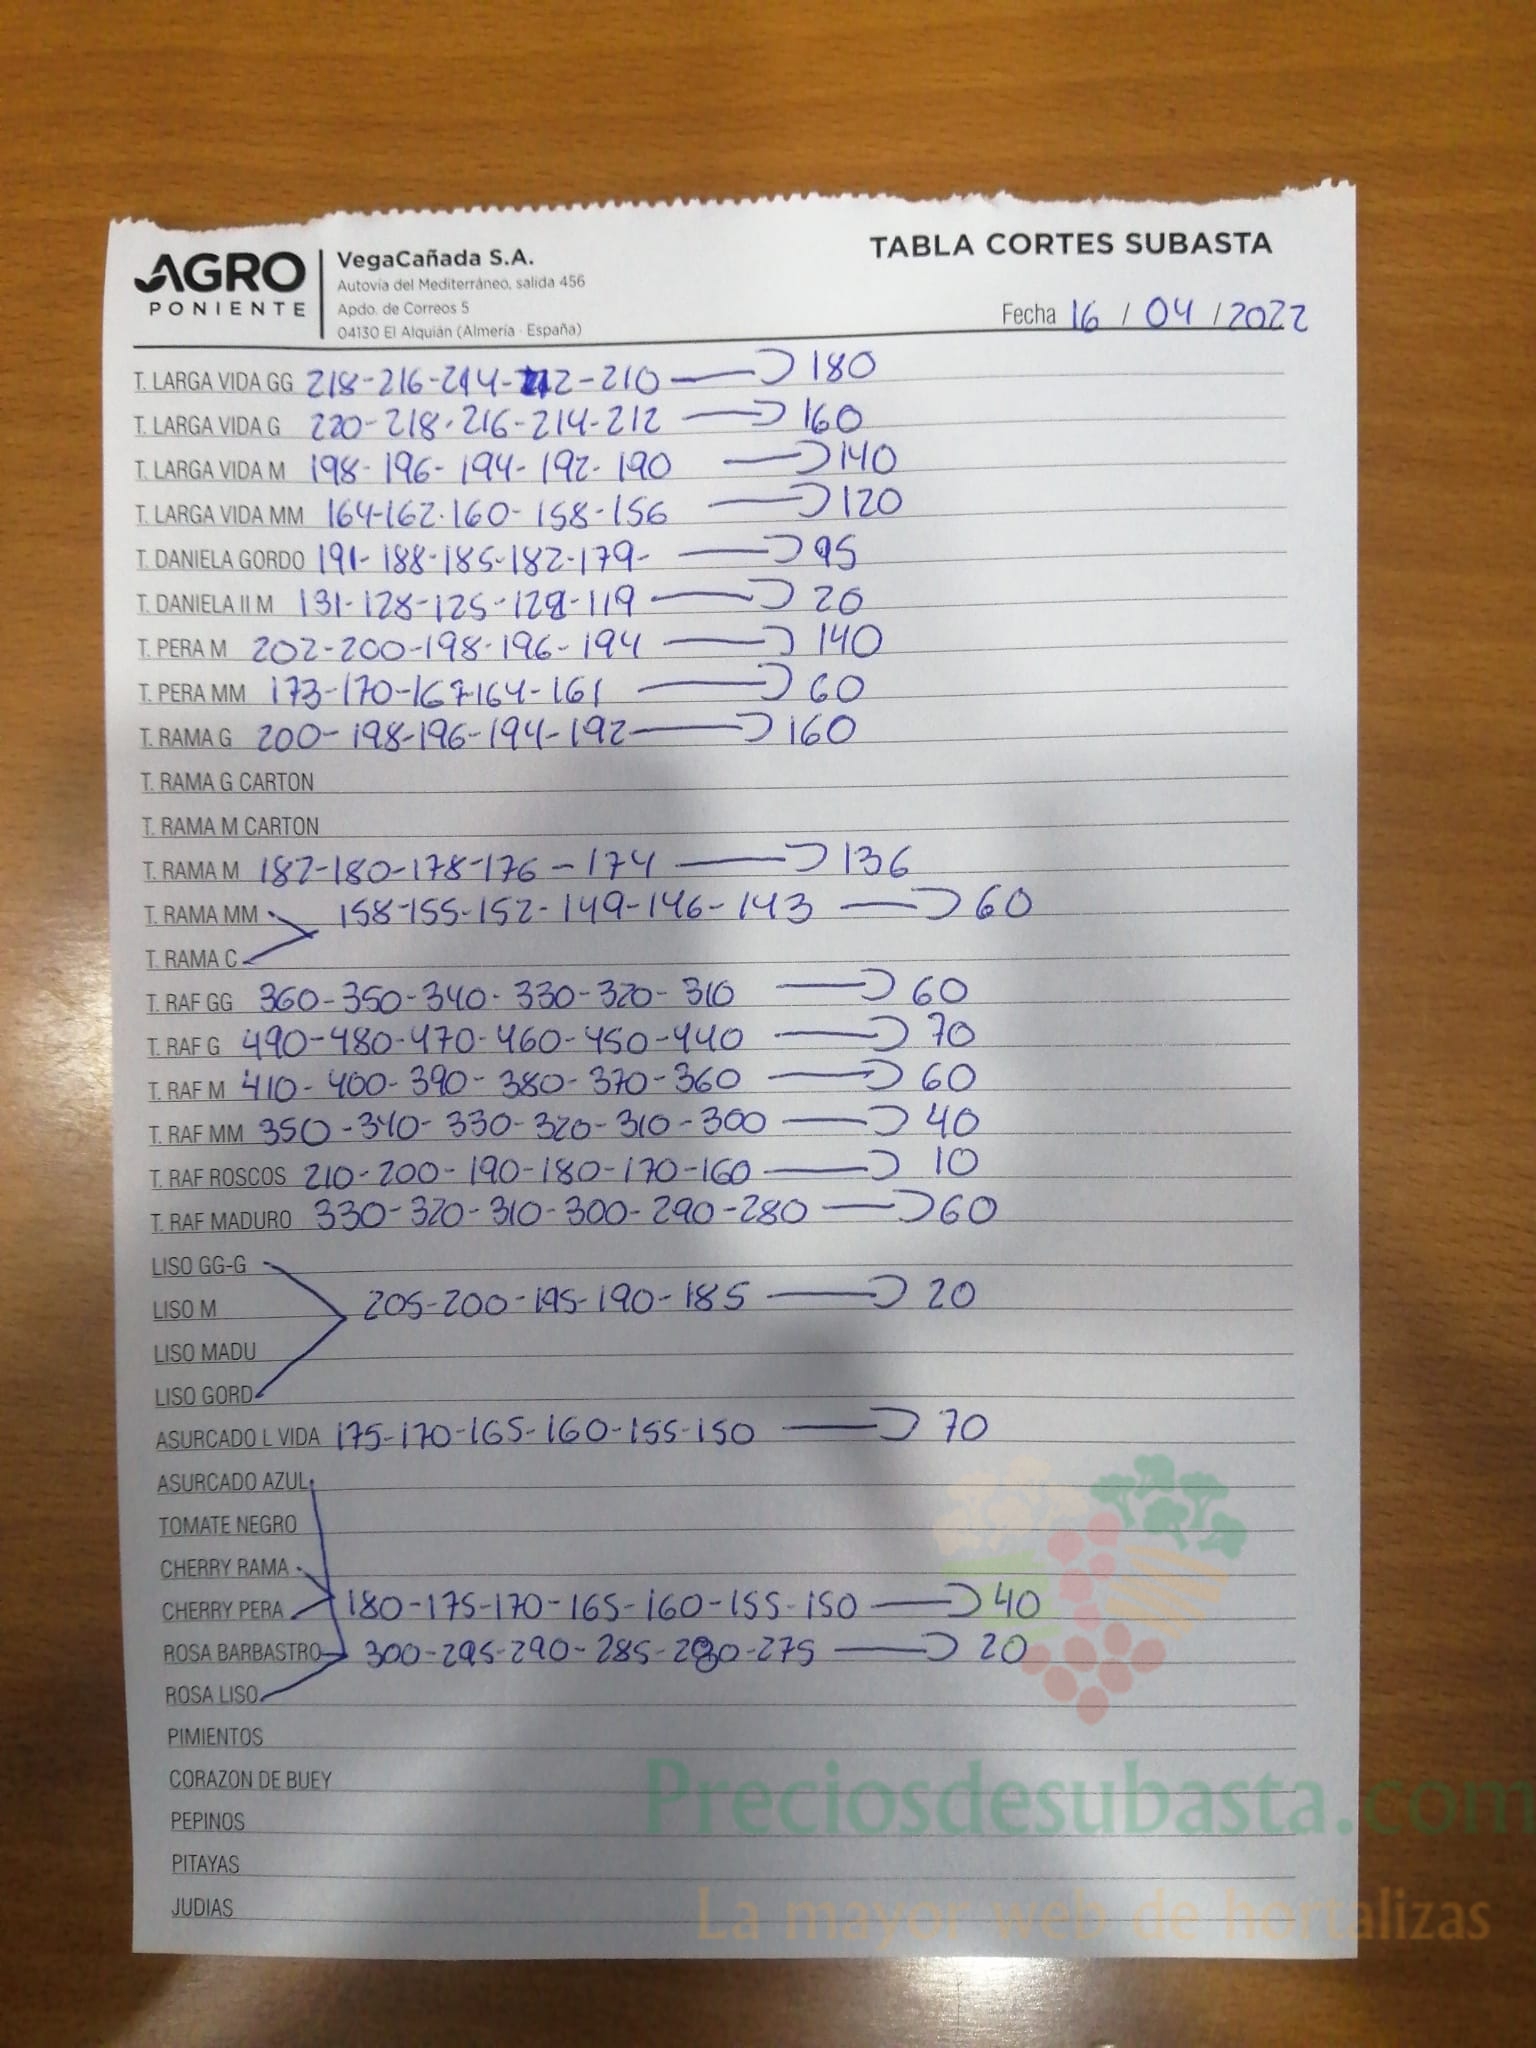 AGRO
PONIENTE
VegaCañada S.A.
Autovía del Mediterráneo, salida 456
Apdo. de Correos 5
04130 El Alquián (Almería - España)
TABLA CORTES SUBASTA
Fecha 16 / 04 / 2022
T. LARGA VIDA GG 218-216-214-212-210 180
T. LARGA VIDA G 220-218-216-214-212 160
T. LARGA VIDA M 198-196-194-192-190 140
T. LARGA VIDA MM 164-162-160-158-156 120
T. DANIELA GORDO 191-188-185-182-179- 95
T. DANIELA II M 131-128-125-122-119 20
T. PERA M 202-200-198-196-194 140
T. PERA MM 173-170-167-164-161 60
T. RAMA G 200-198-196-194-192 160
T. RAMA G CARTON
T. RAMA M CARTON
T. RAMA M 182-180-178-176-174 136
T. RAMA MM 158-155-152-149-146-143 60
T. RAMA C
T. RAF GG 360-350-340-330-320-310 60
T. RAF G 490-480-470-460-450-440 70
T. RAF M 410-400-390-380-370-360 60
T. RAF MM 350-340-330-320-310-300 40
T. RAF ROSCOS 210-200-190-180-170-160 10
T. RAF MADURO 330-320-310-300-290-280 60
LISO GG-G
LISO M 205-200-195-190-185 20
LISO MADU
LISO GORD
ASURCADO L VIDA 175-170-165-160-155-150 70
ASURCADO AZUL
TOMATE NEGRO
CHERRY RAMA
CHERRY PERA 180-175-170-165-160-155-150 40
ROSA BARBASTRO 300-295-290-285-280-275 20
ROSA LISO
PIMIENTOS
CORAZON DE BUEY
PEPINOS
PITAYAS
JUDIAS
Preciosdesubasta.com
La mayor web de hortalizas